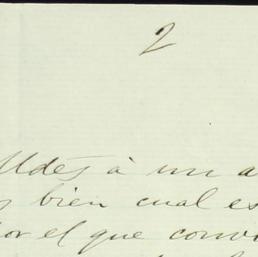 2
Udes à un a
bien cual es
por el que conv